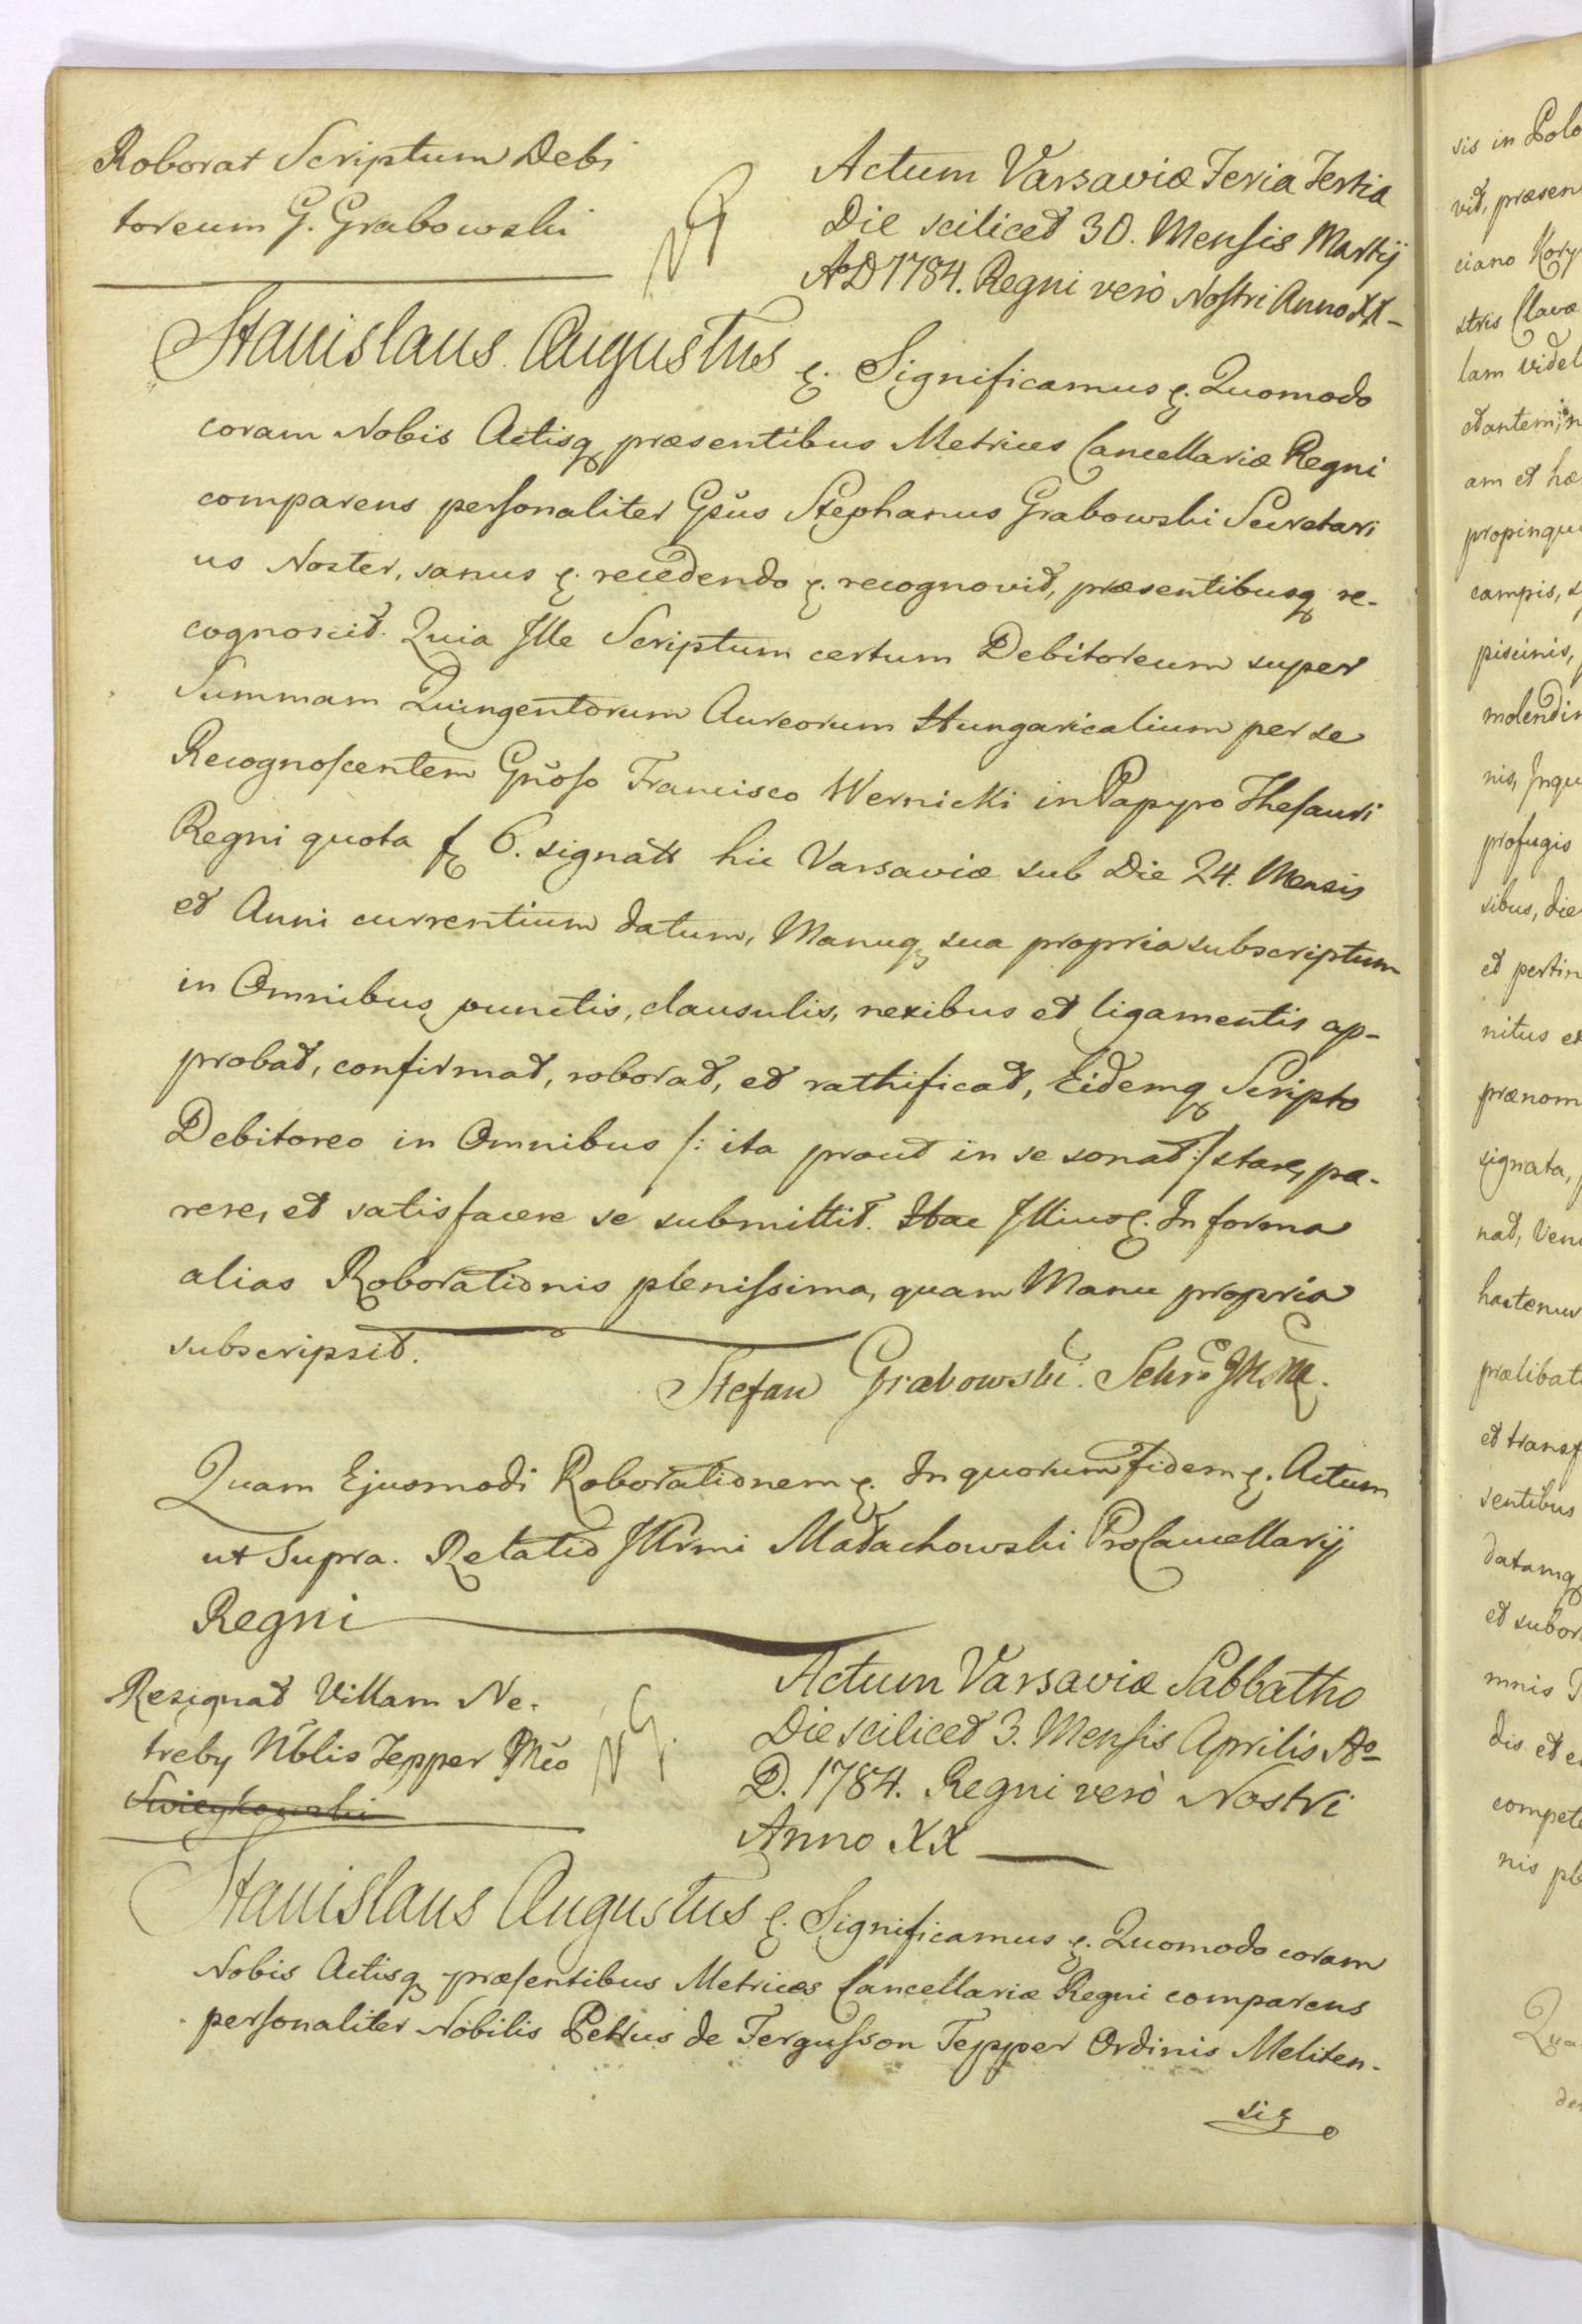 Roborat Scriptum Debi
toreum G. Grabowski
Actum Varsaviæ Feria Tertia
Die scilicet 30. Mensis Martij
AoD 1784. Regni verò Nostri Anno XX
Stanislaus Augustus &. Significamus &. Quomodo
coram Nobis Actisq præsentibus Metrices Cancellariæ Regni
comparens personaliter Gñsus Stephanus Grabowski Secretari
us Noster, sanus &. recedendo &. recognovit, præsentibusq re-
cognoscit. Quia Ille Scriptum certum Debitoreum super
Summam Quingentorum Aureorum Hungaricalium per se
Recognoscentem Gñoso Francisco Wernicki in Papyro Thesauri
Regni quota f 6. signatt hic Varsaviæ sub Die 24. Mensis
et Anni currentium datum, Manuq sua propria subscriptum
in Omnibus punctis, clausulis, nexibus et ligamentis ap-
probat, confirmat, roborat, et rathificat, Eidemq Scripto
Debitoreo in Omnibus /: ita prout in se sonat :/ stare, pa-
rere, et satisfacere se submittit. Hac Illius &. In forma
alias Roborationis plenissima, quam Manu propria
subscripsit.
Stefan Grabowski
Quam Ejusmodi Roborationem &. In quorum fidem &. Actum
ut Supra. Relatio Illrmi Małachowski ProCancellarij
Regni
Resignat Villam Ne-
treby Nblis Tepper
Actum Varsaviæ Sabbatho
Die scilicet 3. Mensis Aprilis Ao
D. 1784. Regni verò Nostri
Anno XX
Stanislaus Augustus &. Significamus &. Quomodo coram
Nobis Actisq præsentibus Metrices Cancellariæ Regni comparens
personaliter Nobilis Petrus de Fergusson Tepper Ordinis Meliten-
sis
sis in Polo
vit, præsen
ciano Kory
stris Clavæ
lam videl
am et hæ
propinqu
campis, s
piscinis,
molendin
nis, Inqu
profugis
sibus, die
et pertin
nitus et
prænom
signata,
nat, Ven
hactenus
prælibat
et transf
sentibus
datamq
et subor
mnis
dis et e
compete
nis ple
Qua